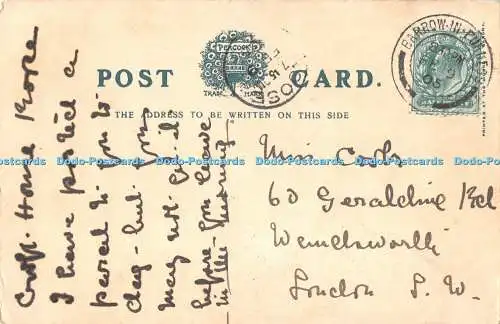 POST CARD.
PEACOCK
BRAND
TRADE MARK
THE ADDRESS TO BE WRITTEN ON THIS SIDE
BARROW-IN-FURNESS
Croft House
I have posted a
parcel to you to
day but you
may not get it
before you leave
in the morning.
Miss
60 Geraldine Rd
Wandsworth
London S. W.
Dodo-Postcards Dodo-Postcards Dodo-Postcards Dodo-Postcards